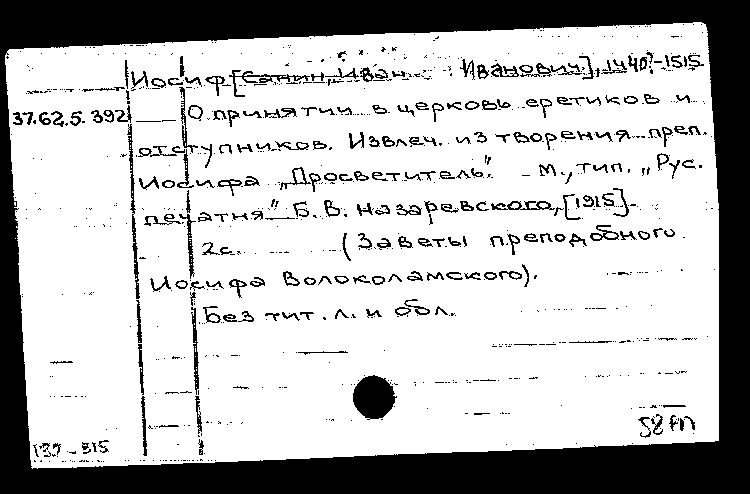 Иосиф [Санин, Иван Иванович], 1440?-1515
37.62.5.392 О принятии в церковь еретиков и
отступников. Извлеч. из творения преп.
Иосифа „Просветитель". - М., тип. „Рус.
печатня" Б. В. Назаревского, [1915].
2с. (Заветы преподобного
Иосифа Волоколамского).
Без тит. л. и обл.
58 РП
137-315